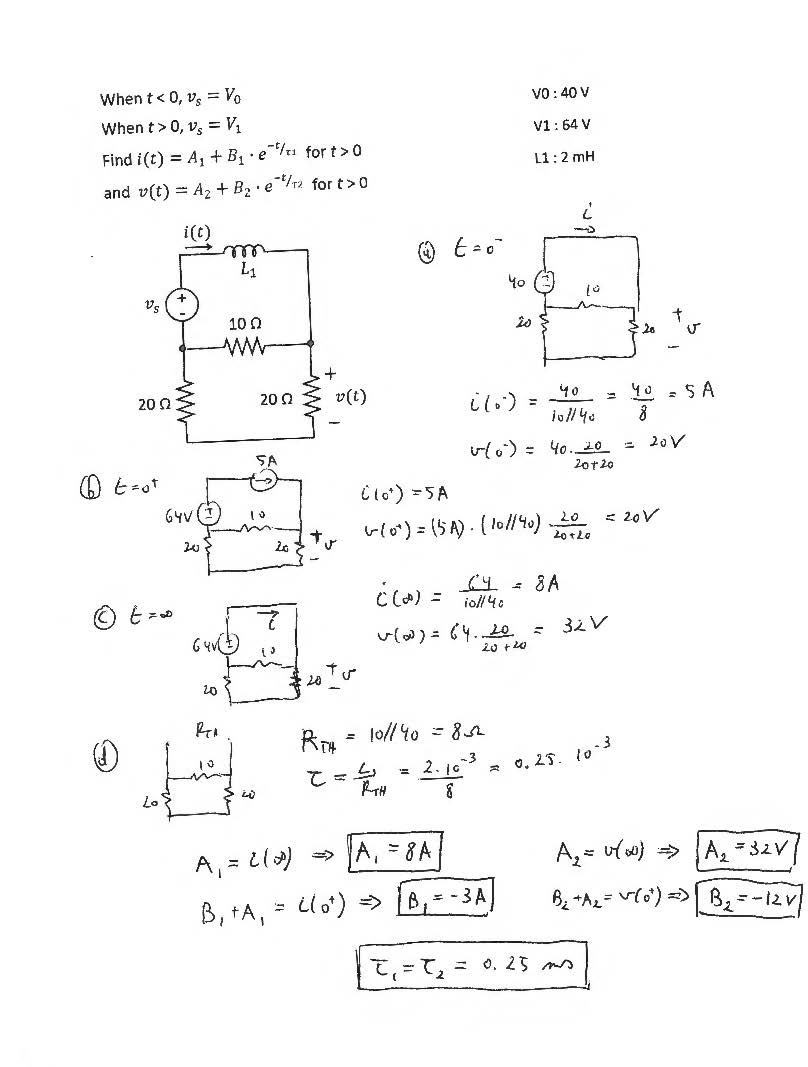 When t < 0, vₛ = V₀
V0 : 40 V
When t > 0, vₛ = V₁
V1 : 64 V
Find i(t) = A₁ + B₁ · e^(-t/τ1) for t > 0
L1 : 2 mH
and v(t) = A₂ + B₂ · e^(-t/τ2) for t > 0
i(t)
L₁
vₛ
+
-
10 Ω
20 Ω
20 Ω
+
v(t)
-
ⓐ t = 0⁻
i
40
10
20
20
+
v
-
i(0⁻) = 40/(10//40) = 40/8 = 5 A
v(0⁻) = 40 · 20/(20+20) = 20V
ⓑ t = 0⁺
5A
64V
10
20
20
+
v
-
i(0⁺) = 5A
v(0⁺) = (5A) · (10//40) 20/(20+20) = 20V
ⓒ t = ∞
i
64V
10
20
20
+
v
-
i(∞) = 64/(10//40) = 8A
v(∞) = 64 · 20/(20+20) = 32V
ⓓ
R_TH
10
20
20
R_TH = 10//40 = 8Ω
τ = L₁/R_TH = 2·10⁻³/8 = 0.25 · 10⁻³
A₁ = i(∞) ⇒ A₁ = 8A
A₂ = v(∞) ⇒ A₂ = 32V
B₁ + A₁ = i(0⁺) ⇒ B₁ = -3A
B₂ + A₂ = v(0⁺) ⇒ B₂ = -12V
τ₁ = τ₂ = 0.25 ms